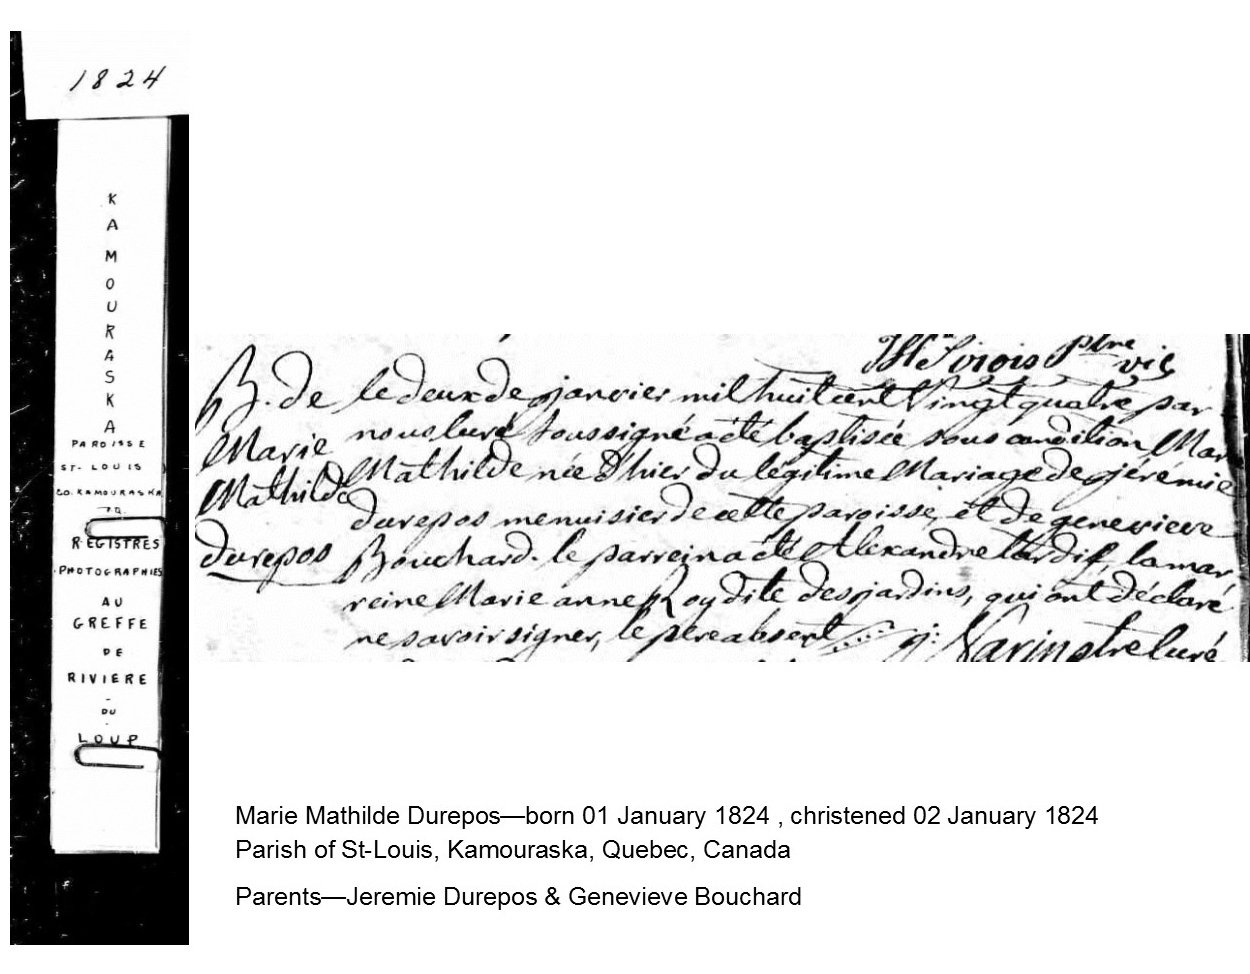 1824
K
A
M
O
U
R
A
S
K
A
PAROISSE
ST-LOUIS
CO. KAMOURASKA
REGISTRES
PHOTOGRAPHIES
AU
GREFFE
DE
RIVIERE
-
DU
-
LOUP
Ptre
vic
B. de
Marie
Mathilde
durepos
le deux de janvier mil huit cent vingt quatre par
nous Curé soussigné a été baptisée sous condition Marie
Mathilde née d'hier du légitime Mariage de jérémie
durepos menuisier de cette paroisse, et de genevieve
Bouchard. le parrein a été Alexandre tardif, la mar
reine Marie anne Roy dite desjardins, qui ont déclaré
ne savoir signer, le pere absent
Varin ptre Curé
Marie Mathilde Durepos—born 01 January 1824 , christened 02 January 1824
Parish of St-Louis, Kamouraska, Quebec, Canada
Parents—Jeremie Durepos & Genevieve Bouchard